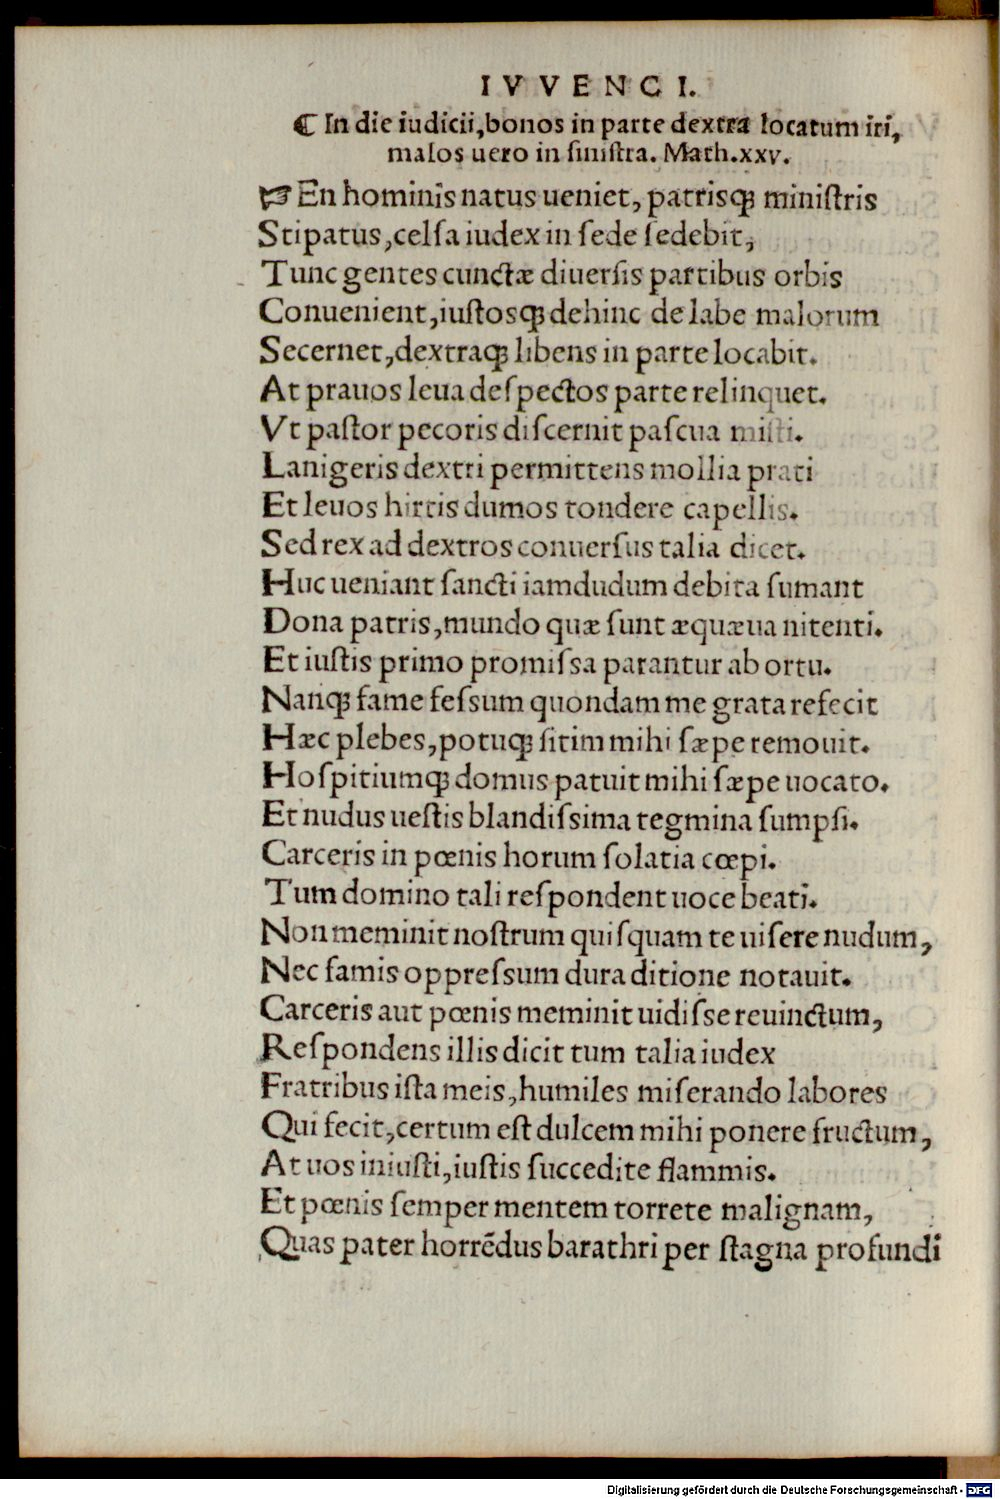 IVVENCI.
☙ In die iudicii, bonos in parte dextra locatum iri,
malos uero in sinistra. Math.xxv.
☞ En hominis natus ueniet, patrisqꝫ ministris
Stipatus, celsa iudex in sede sedebit,
Tunc gentes cunctæ diuersis partibus orbis
Conuenient, iustosqꝫ dehinc de labe malorum
Secernet, dextraqꝫ libens in parte locabit.
At prauos leua despectos parte relinquet.
Vt pastor pecoris discernit pascua misti.
Lanigeris dextri permittens mollia prati
Et leuos hirtis dumos tondere capellis.
Sed rex ad dextros conuersus talia dicet.
Huc ueniant sancti iamdudum debita sumant
Dona patris, mundo quæ sunt æquæua nitenti.
Et iustis primo promissa parantur ab ortu.
Nanqꝫ fame fessum quondam me grata refecit
Hæc plebes, potuqꝫ sitim mihi sæpe remouit.
Hospitiumqꝫ domus patuit mihi sæpe uocato.
Et nudus uestis blandissima tegmina sumpsi.
Carceris in pœnis horum solatia cœpi.
Tum domino tali respondent uoce beati.
Non meminit nostrum quisquam te uisere nudum,
Nec famis oppressum dura ditione notauit.
Carceris aut pœnis meminit uidisse reuinctum,
Respondens illis dicit tum talia iudex
Fratribus ista meis, humiles miserando labores
Qui fecit, certum est dulcem mihi ponere fructum,
At uos iniusti, iustis succedite flammis.
Et pœnis semper mentem torrete malignam,
Quas pater horrēdus barathri per stagna profundi
Digitalisierung gefördert durch die Deutsche Forschungsgemeinschaft - DFG